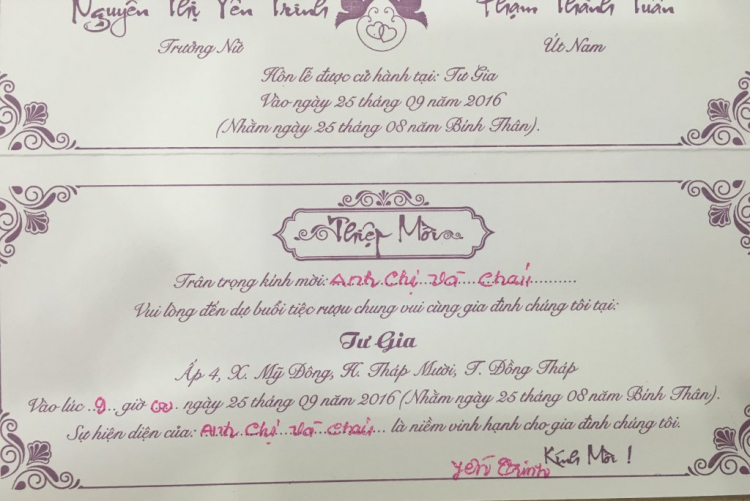 Nguyễn Thị Yến Trinh Phạm Thành Tuân
Trưởng Nữ Út Nam
Hôn lễ được cử hành tại: Tư Gia
Vào ngày 25 tháng 09 năm 2016
(Nhằm ngày 25 tháng 08 năm Bính Thân).
Thiệp Mời
Trân trọng kính mời: Anh Chị Và Cháu
Vui lòng đến dự buổi tiệc rượu chung vui cùng gia đình chúng tôi tại:
Tư Gia
Ấp 4, X. Mỹ Đông, H. Tháp Mười, T. Đồng Tháp
Vào lúc 9 giờ 00 ngày 25 tháng 09 năm 2016 (Nhằm ngày 25 tháng 08 năm Bính Thân).
Sự hiện diện của: Anh Chị Và Cháu là niềm vinh hạnh cho gia đình chúng tôi.
Kính Mời !
Yến Trinh